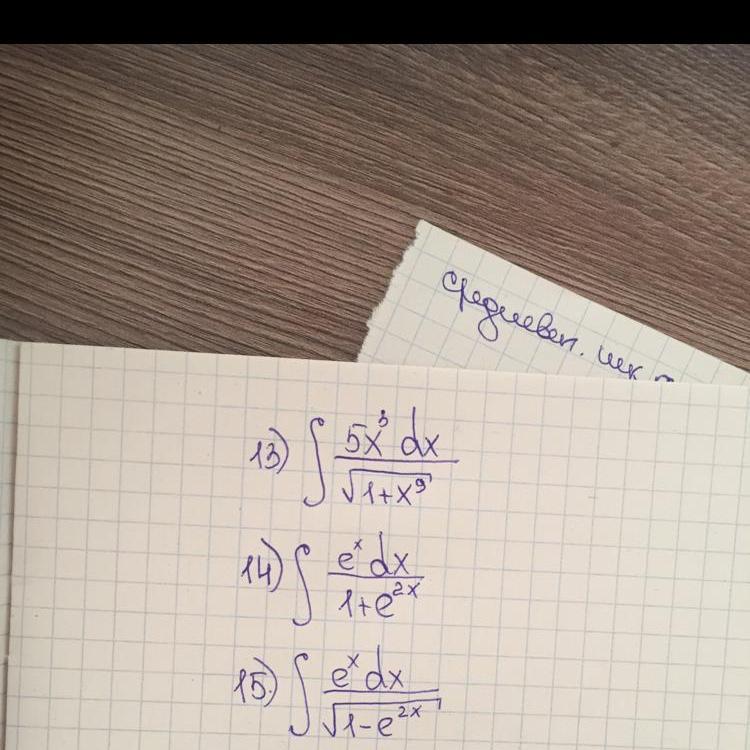 средневек. шк
13) ∫ 5x³ dx / √(1+x⁹)
14) ∫ eˣ dx / (1+e²ˣ)
15.) ∫ eˣ dx / √(1-e²ˣ)